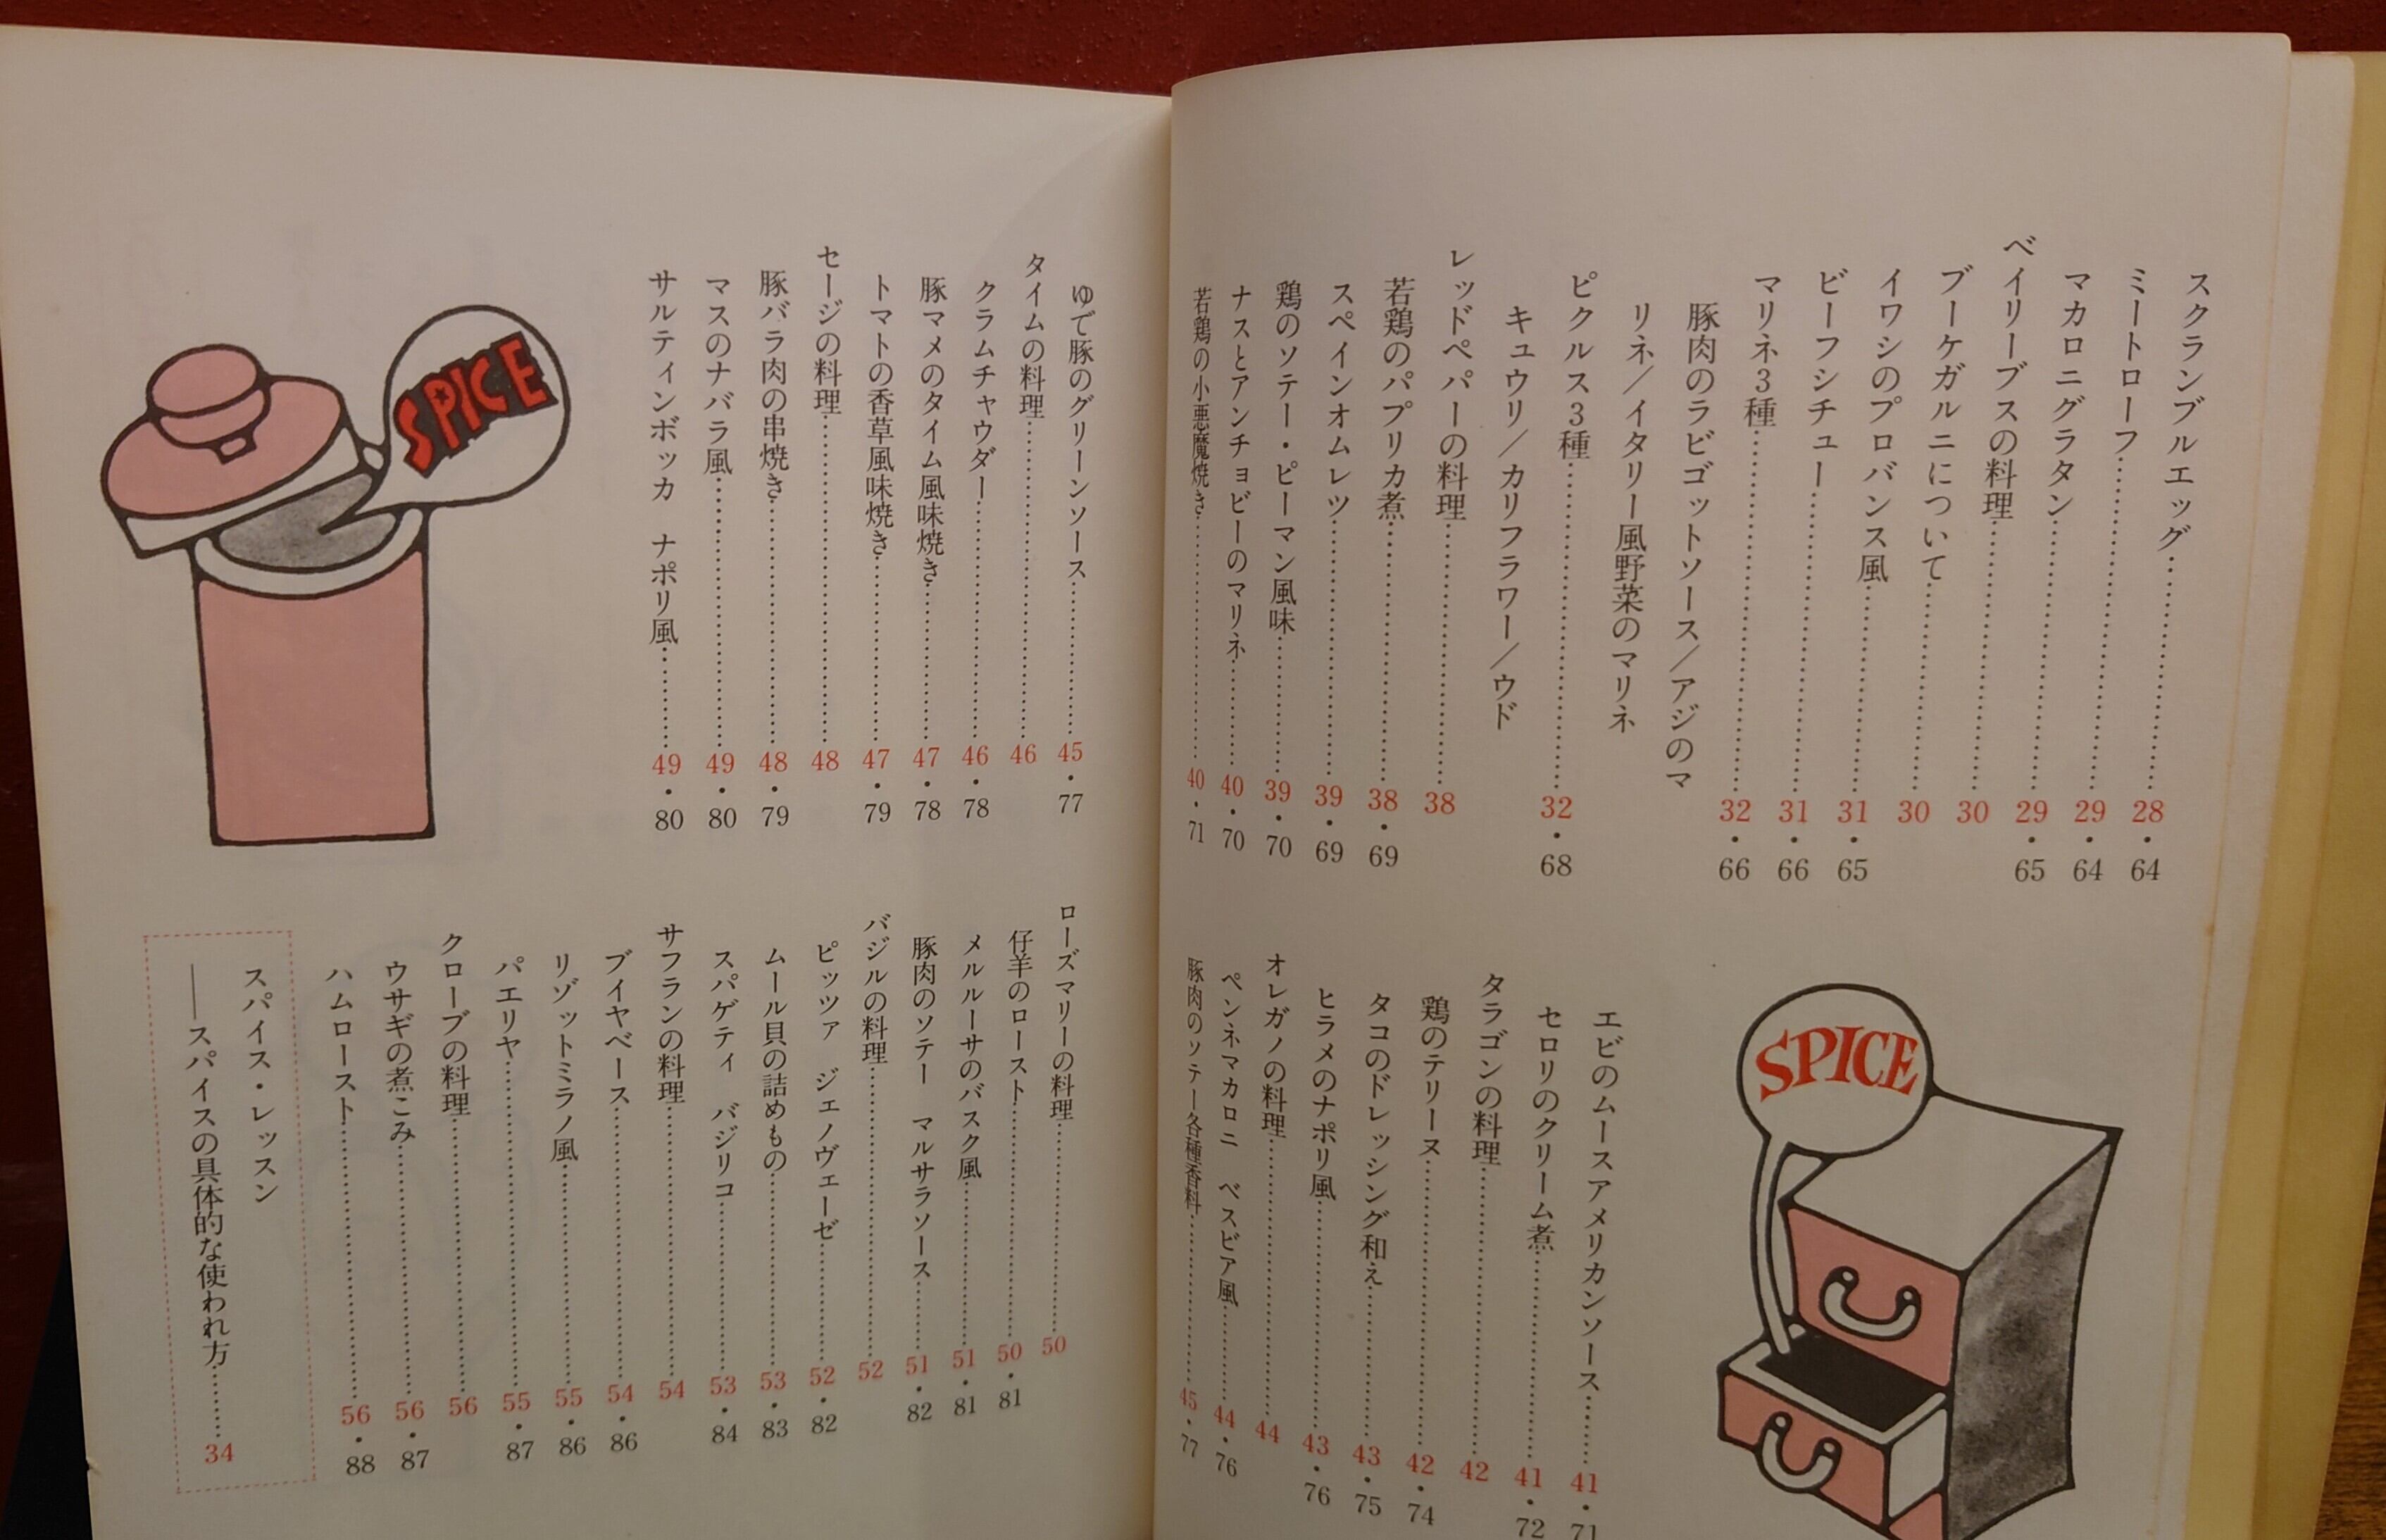 スクランブルエッグ……28・64
ミートローフ……29・64
マカロニグラタン……29・65
ベイリーブスの料理……30
ブーケガルニについて……30
イワシのプロバンス風……31・65
ビーフシチュー……31・66
マリネ3種……32・66
豚肉のラビゴットソース／アジのマ
リネ／イタリー風野菜のマリネ
ピクルス3種……32・68
キュウリ／カリフラワー／ウド
レッドペパーの料理……38
若鶏のパプリカ煮……38・69
スペインオムレツ……39・69
鶏のソテー・ピーマン風味……39・70
ナスとアンチョビーのマリネ……40・70
若鶏の小悪魔焼き……40・71
エビのムースアメリカンソース……41・71
セロリのクリーム煮……41・72
タラゴンの料理……42
鶏のテリーヌ……42・74
タコのドレッシング和え……43・75
ヒラメのナポリ風……43・76
オレガノの料理……44
ペンネマカロニ　ベスビア風……44・76
豚肉のソテー各種香料……45・77
SPICE
ゆで豚のグリーンソース……45・77
タイムの料理……46
クラムチャウダー……46・78
豚マメのタイム風味焼き……47・78
トマトの香草風味焼き……47・79
セージの料理……48
豚バラ肉の串焼き……48・79
マスのナバラ風……49・80
サルティンボッカ　ナポリ風……49・80
SPICE
ローズマリーの料理……50
仔羊のロースト……50・81
メルルーサのバスク風……51・81
豚肉のソテー　マルサラソース……51・82
バジルの料理……52
ピッツァ　ジェノヴェーゼ……52・82
ムール貝の詰めもの……53・83
スパゲティ　バジリコ……53・84
サフランの料理……54
ブイヤベース……54・86
リゾットミラノ風……55・86
パエリヤ……55・87
クローブの料理……56
ウサギの煮こみ……56・87
ハムロースト……56・88
スパイス・レッスン
——スパイスの具体的な使われ方……34